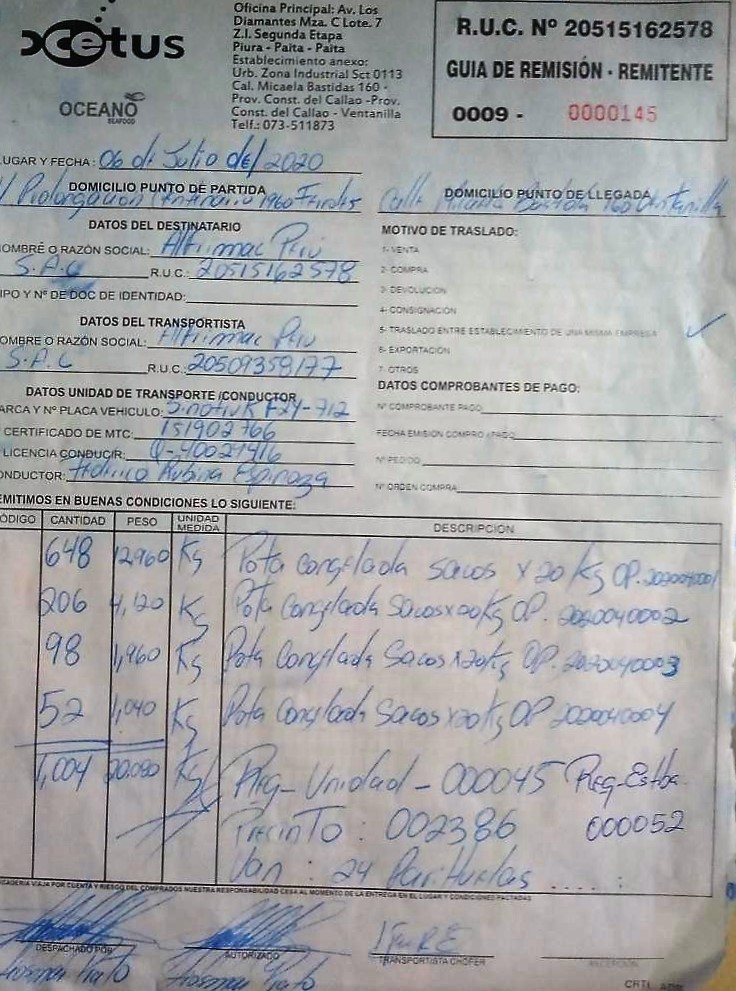 Cetus
OCEANO
SEAFOOD
Oficina Principal: Av. Los
Diamantes Mza. C Lote. 7
Z.I. Segunda Etapa
Piura - Paita - Paita
Establecimiento anexo:
Urb. Zona Industrial Sct 0113
Cal. Micaela Bastidas 160 -
Prov. Const. del Callao -Prov.
Const. del Callao - Ventanilla
Telf.: 073-511873
R.U.C. Nº 20515162578
GUIA DE REMISIÓN - REMITENTE
0009 - 0000145
LUGAR Y FECHA: 06 de Julio del 2020
DOMICILIO PUNTO DE PARTIDA
Prolongacion 1960
DOMICILIO PUNTO DE LLEGADA
Calle 160 Ventanilla
DATOS DEL DESTINATARIO
NOMBRE O RAZÓN SOCIAL: Altrimac Peru
S.A.C R.U.C.: 20515162578
TIPO Y Nº DE DOC DE IDENTIDAD:
DATOS DEL TRANSPORTISTA
NOMBRE O RAZÓN SOCIAL: Altrimac Peru
S.A.C R.U.C.: 20509359177
DATOS UNIDAD DE TRANSPORTE /CONDUCTOR
MARCA Y Nº PLACA VEHICULO: F2Y-712
CERTIFICADO DE MTC: 151902766
LICENCIA CONDUCIR: Q-40029416
CONDUCTOR: Rubina Espinoza
MOTIVO DE TRASLADO:
1- VENTA
2- COMPRA
3- DEVOLUCION
4- CONSIGNACIÓN
5- TRASLADO ENTRE ESTABLECIMIENTO DE UNA MISMA EMPRESA ✓
6- EXPORTACIÓN
7- OTROS
DATOS COMPROBANTES DE PAGO:
Nº COMPROBANTE PAGO
FECHA EMISION COMPRO /PAGO
Nº PEDIDO
Nº ORDEN COMPRA
REMITIMOS EN BUENAS CONDICIONES LO SIGUIENTE:
CÓDIGO CANTIDAD PESO UNIDAD MEDIDA DESCRIPCIÓN
648 12,960 Kg Pota Congelada sacos x 20 Kg OP. 2020040001
206 4,120 Kg Pota Congelada Sacos x 20 Kg OP. 2020040002
98 1,960 Kg Pota Congelada Sacos x 20 Kg OP. 2020040003
52 1,040 Kg Pota Congelada Sacos x 20 Kg OP 2020040004
1,004 20.080 Kg Reg-Unidad - 000045 Reg-Estba.
Precinto : 002386 000052
Van : 24 Parihuelas
MERCADERIA VIAJA POR CUENTA Y RIESGO DEL COMPRADOS NUESTRA RESPONSABILIDAD CESA AL MOMENTO DE LA ENTREGA EN EL LUGAR Y CONDICIONES PACTADAS
DESPACHADO POR AUTORIZADO TRANSPORTISTA CHOFER RECEPCIÓN